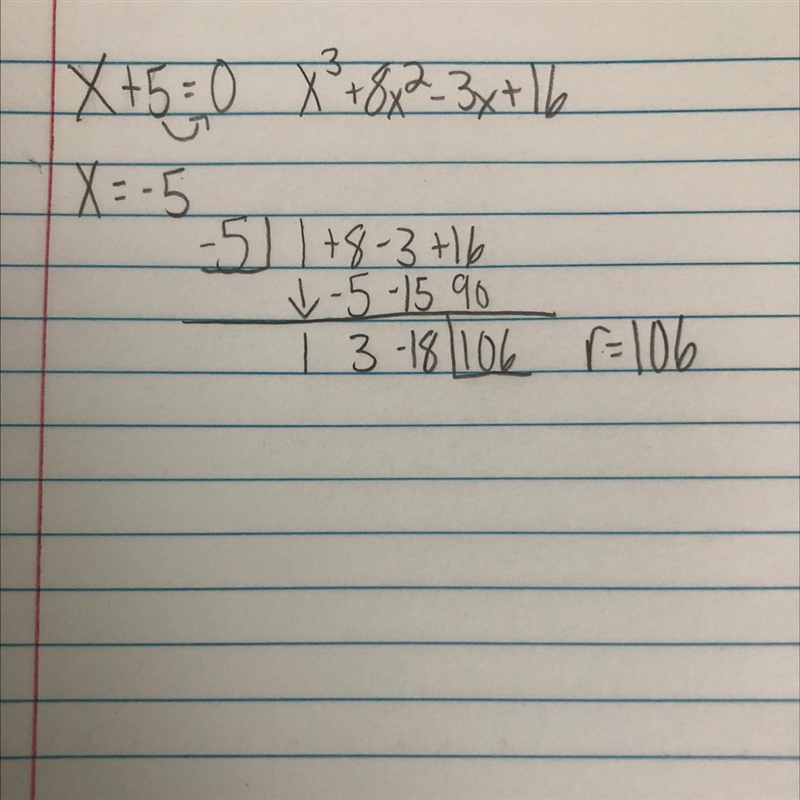 x+5=0 x³+8x²-3x+16
x=-5
-5| 1+8-3+16
↓-5 -15 90
1 3 -18|106 r=106